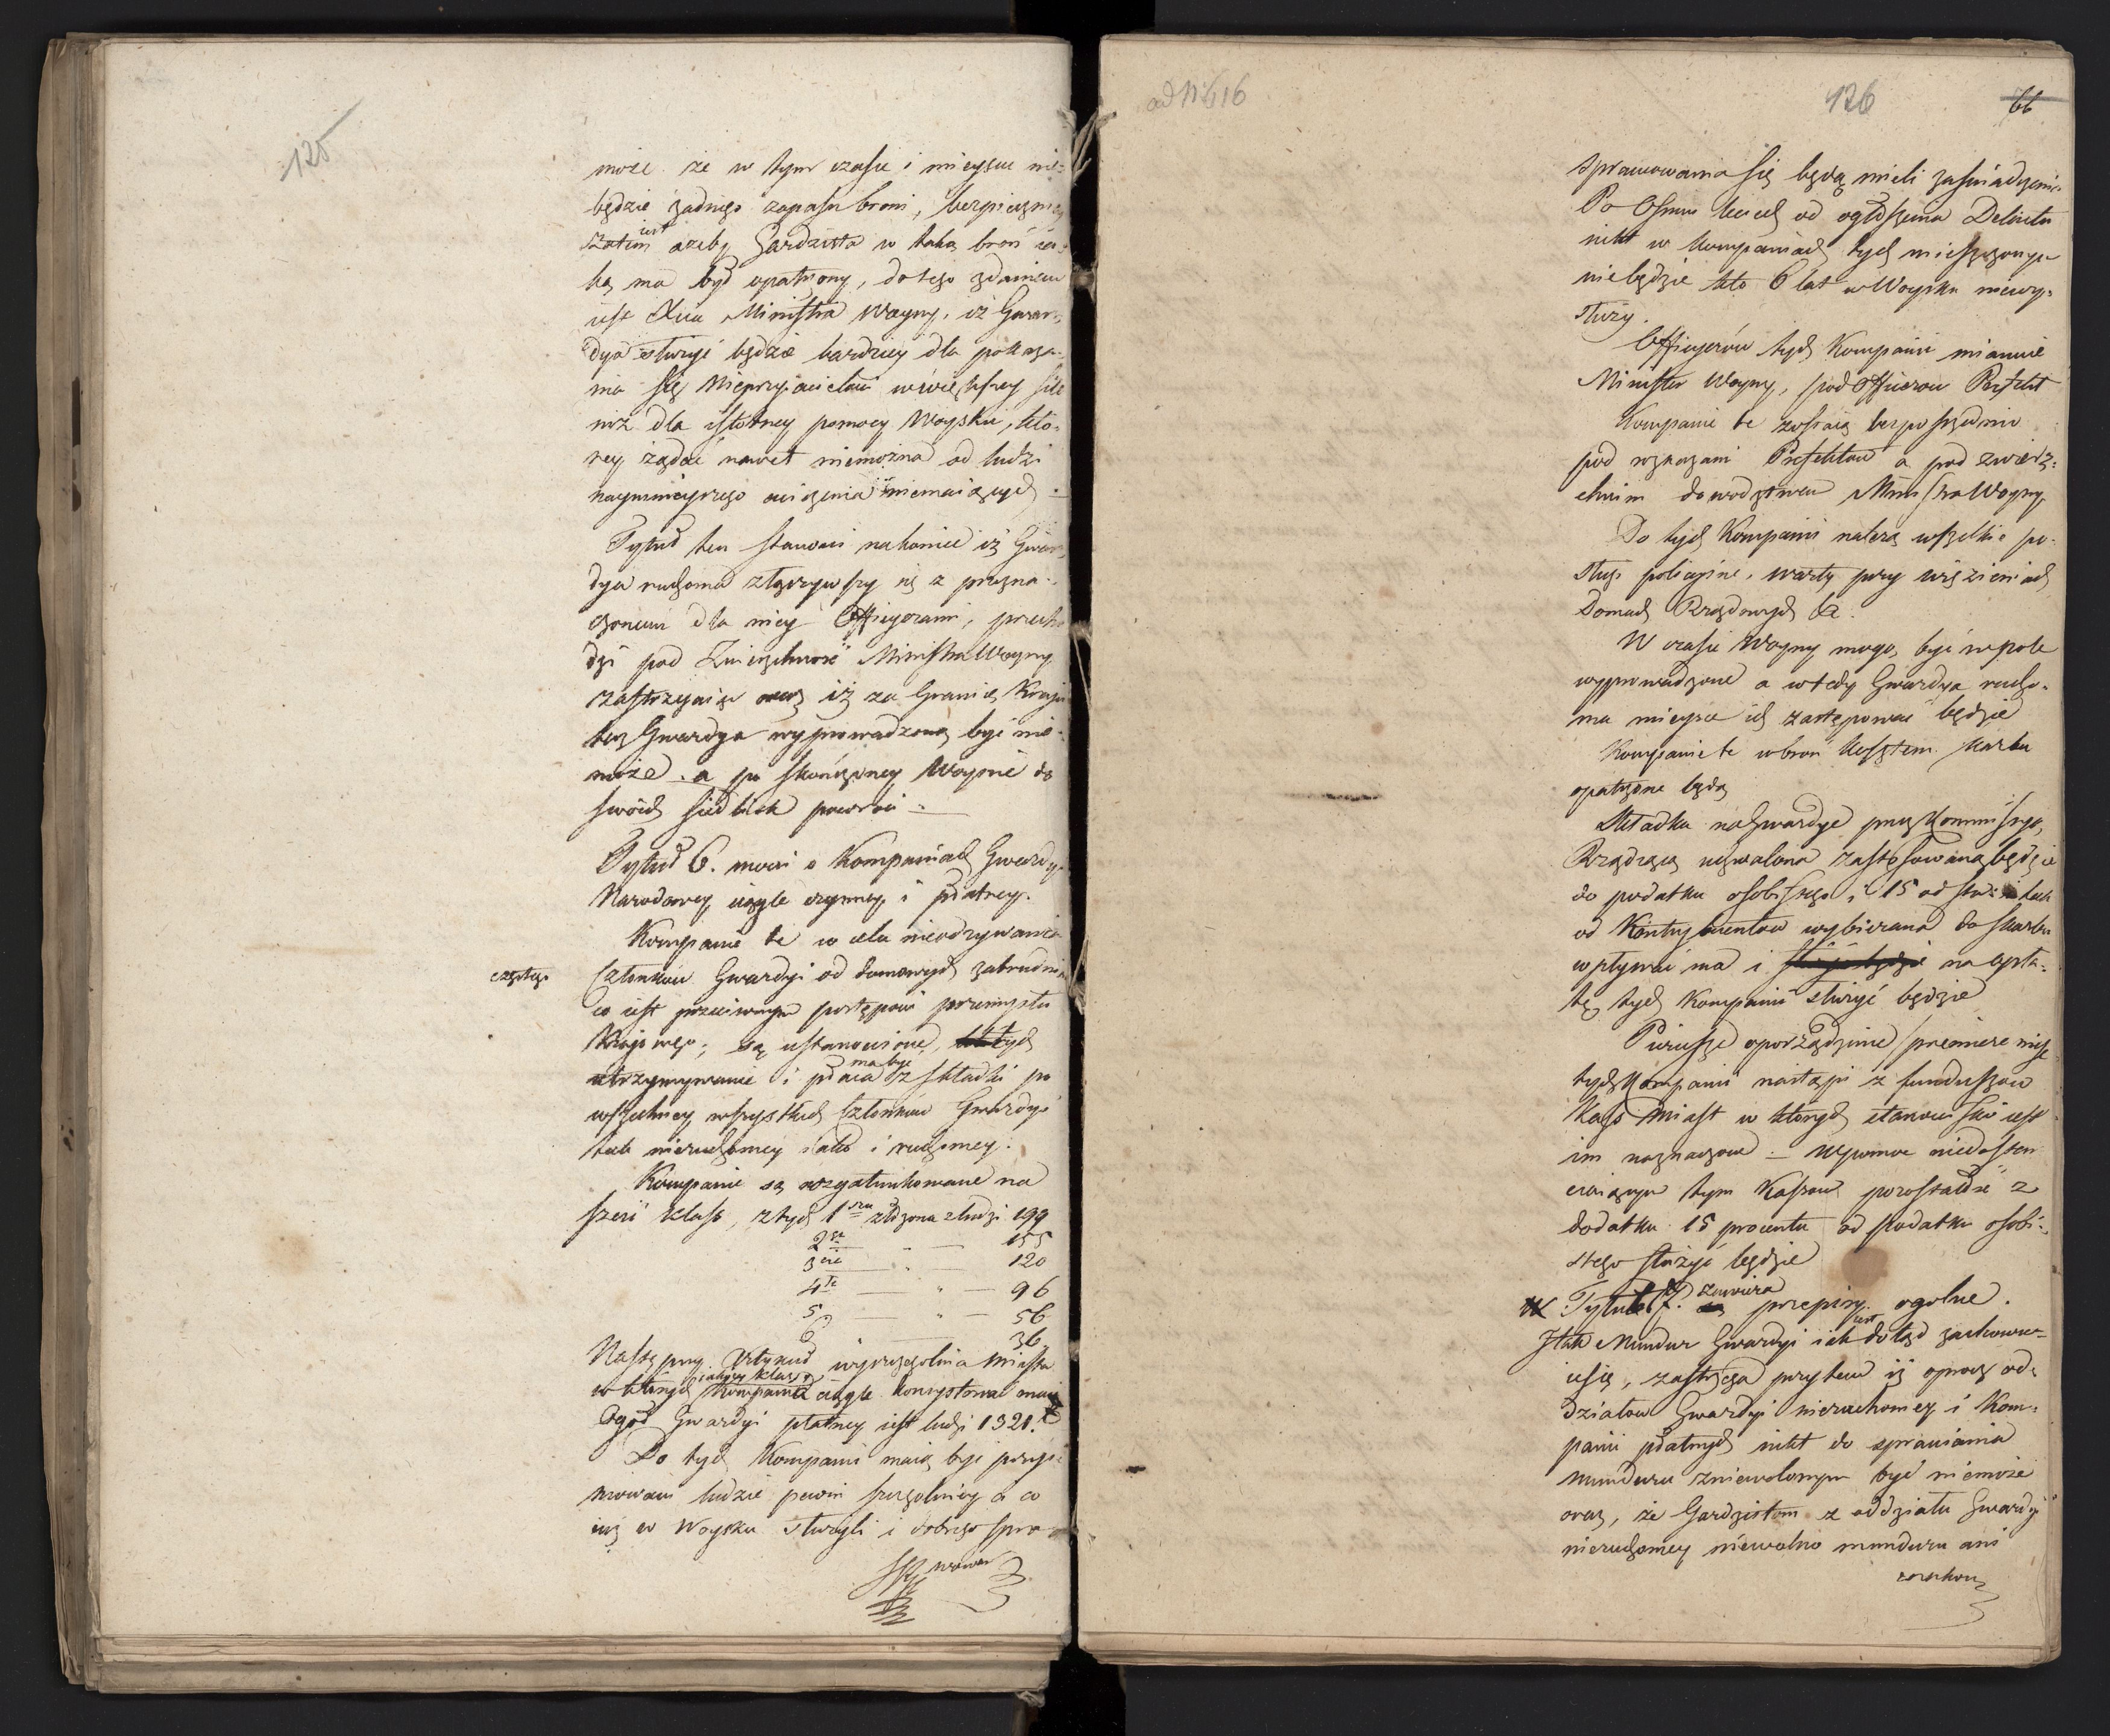 125
może że w tym czasie i mieyscu nie=
będzie żadnego zapasu broni, bezpieczniey
zatem iest ażeby Gardzista w taką broń ia=
ką ma był opatrzony, do tego zdaniem
iest Xcia Ministra Woyny, iż Gwar=
dya służyć będzie bardziey dla pokaza=
nia się Nieprzyiacielowi w większey sile
niż dla istotney pomocy Woysku, któ=
rey żądać nawet niemożna od ludzi
naymnieyszego ćwiczenia niemaiących.
Tytuł ten stanowi nakoniec iż Gwar=
dya ruchoma złączywszy się z przezna=
czonemi dla niey Officyerami, przecho
dzi pod Zwierzchność Ministra Woyny
zastrzegaiąc oraz iż za Granicę Kraju
taż Gwardya wyprowadzoną być nie=
może. a po skończoney Woynie do
swoich siedlisk powróci —
Tytuł 6. mówi o Kompaniach Gwardyi
Narodowey ciągle czynney i płatney.
Kompanie te w celu nieodrywania
częstego Członków Gwardyi od domowych zatrudnień
co iest przeciwnym postępowi przemysłu
Kraiowego; są ustanowione, tych
utrzymywanie i płaca ma być z składki po
wszechney wszystkich Członków Gwardyi
tak nieruchomey iako i ruchomey.
Kompanie są rozgatunkowane na
sześć klass, z tych 1sza złożona z ludzi 199
2ga — " — 155
3cia — " — 120
4ta — " — 96
5 — " — 56
6 — 36
Następny Artykuł wyszczególnia Miasta
w których iakiey klassy Kompanie ciągle konsystować maią
Ogół Gwardyi płatney iest ludzi 1321.
Do tych Kompanii maią być przyi=
mowani ludzie pewni szczególniey a co
iuż w Woysku służyli i dobrego spra=
wowa
ad N 416
126
66
sprawowania się będą mieli zaświadczenie
Po Ośmiu leciech od ogłoszenia Dekretu
nikt w Kompaniach tych mieszczonym
niebędzie kto 6 lat w Woysku niewy=
służy.
Officyerów tych Kompanii mianuie
Minister Woyny, pod Officerów Prefekt
Kompanie te zostaią bezpośrednio
pod rozkazami Prefektów a pod zwierz=
chnim dowództwem Ministra Woyny
Do tych Kompanii należą wszelkie po=
sługi policyine, warty przy więzieniach
Domach Rządowych &c.
W czasie Woyny mogą być w pole
wyprowadzone a wtedy Gwardya rucho=
ma mieysce ich zastępować będzie
Kompanie te w broń kosztem Skarbu
opatrzone będą
Składka na Gwardye przez Kommissyą
Rządzącą uchwalona zastosowana będzie
do podatku osobistego i 15 od sta
od Kontrybuentów wybierana do skarbu
wpływać ma i na opła=
tę tych Kompanii służyć będzie
Pierwsze oporządzenie /premiere mise
tych Kompanii nastąpi z funduszów
Kass Miast w których stanowisko iest
im naznaczone — Wymowne niedostar
czaiącym tym Kassom pozostałość z
dodatku 15 procentu od podatku osobi=
stego służyć będzie
Tytuł 7. zawiera przepisy ogolne.
Iak Mundur Gwardyi iak iest dotąd zachowu=
ie się, zastrzega przytem iż oprócz od=
działów Gwardyi nieruchomey i Kom=
panii płatnych nikt do sprawiania
munduru zniewolonym być niemoże
oraz, że Gardzistom z oddziału Gwardyi
nieruchomey niewolno munduru ani